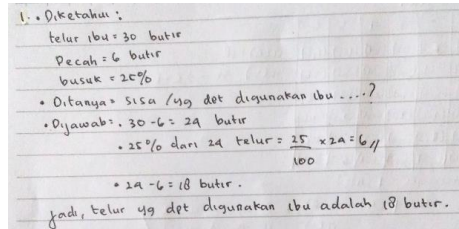 1. • Diketahui :
telur ibu = 30 butir
Pecah = 6 butir
busuk = 25%
• Ditanya = sisa / yg dpt digunakan ibu ....?
• Dijawab : . 30 - 6 = 24 butir
• 25% dari 24 telur = 25/100 x 24 = 6 //
• 24 - 6 = 18 butir.
Jadi, telur yg dpt digunakan ibu adalah 18 butir.